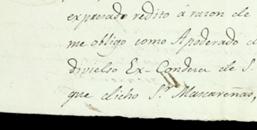 expresado redito á razon de
me obligo como Apoderado d
divielso Ex-Condesa de S
que dicho Sr. Mascareñas,